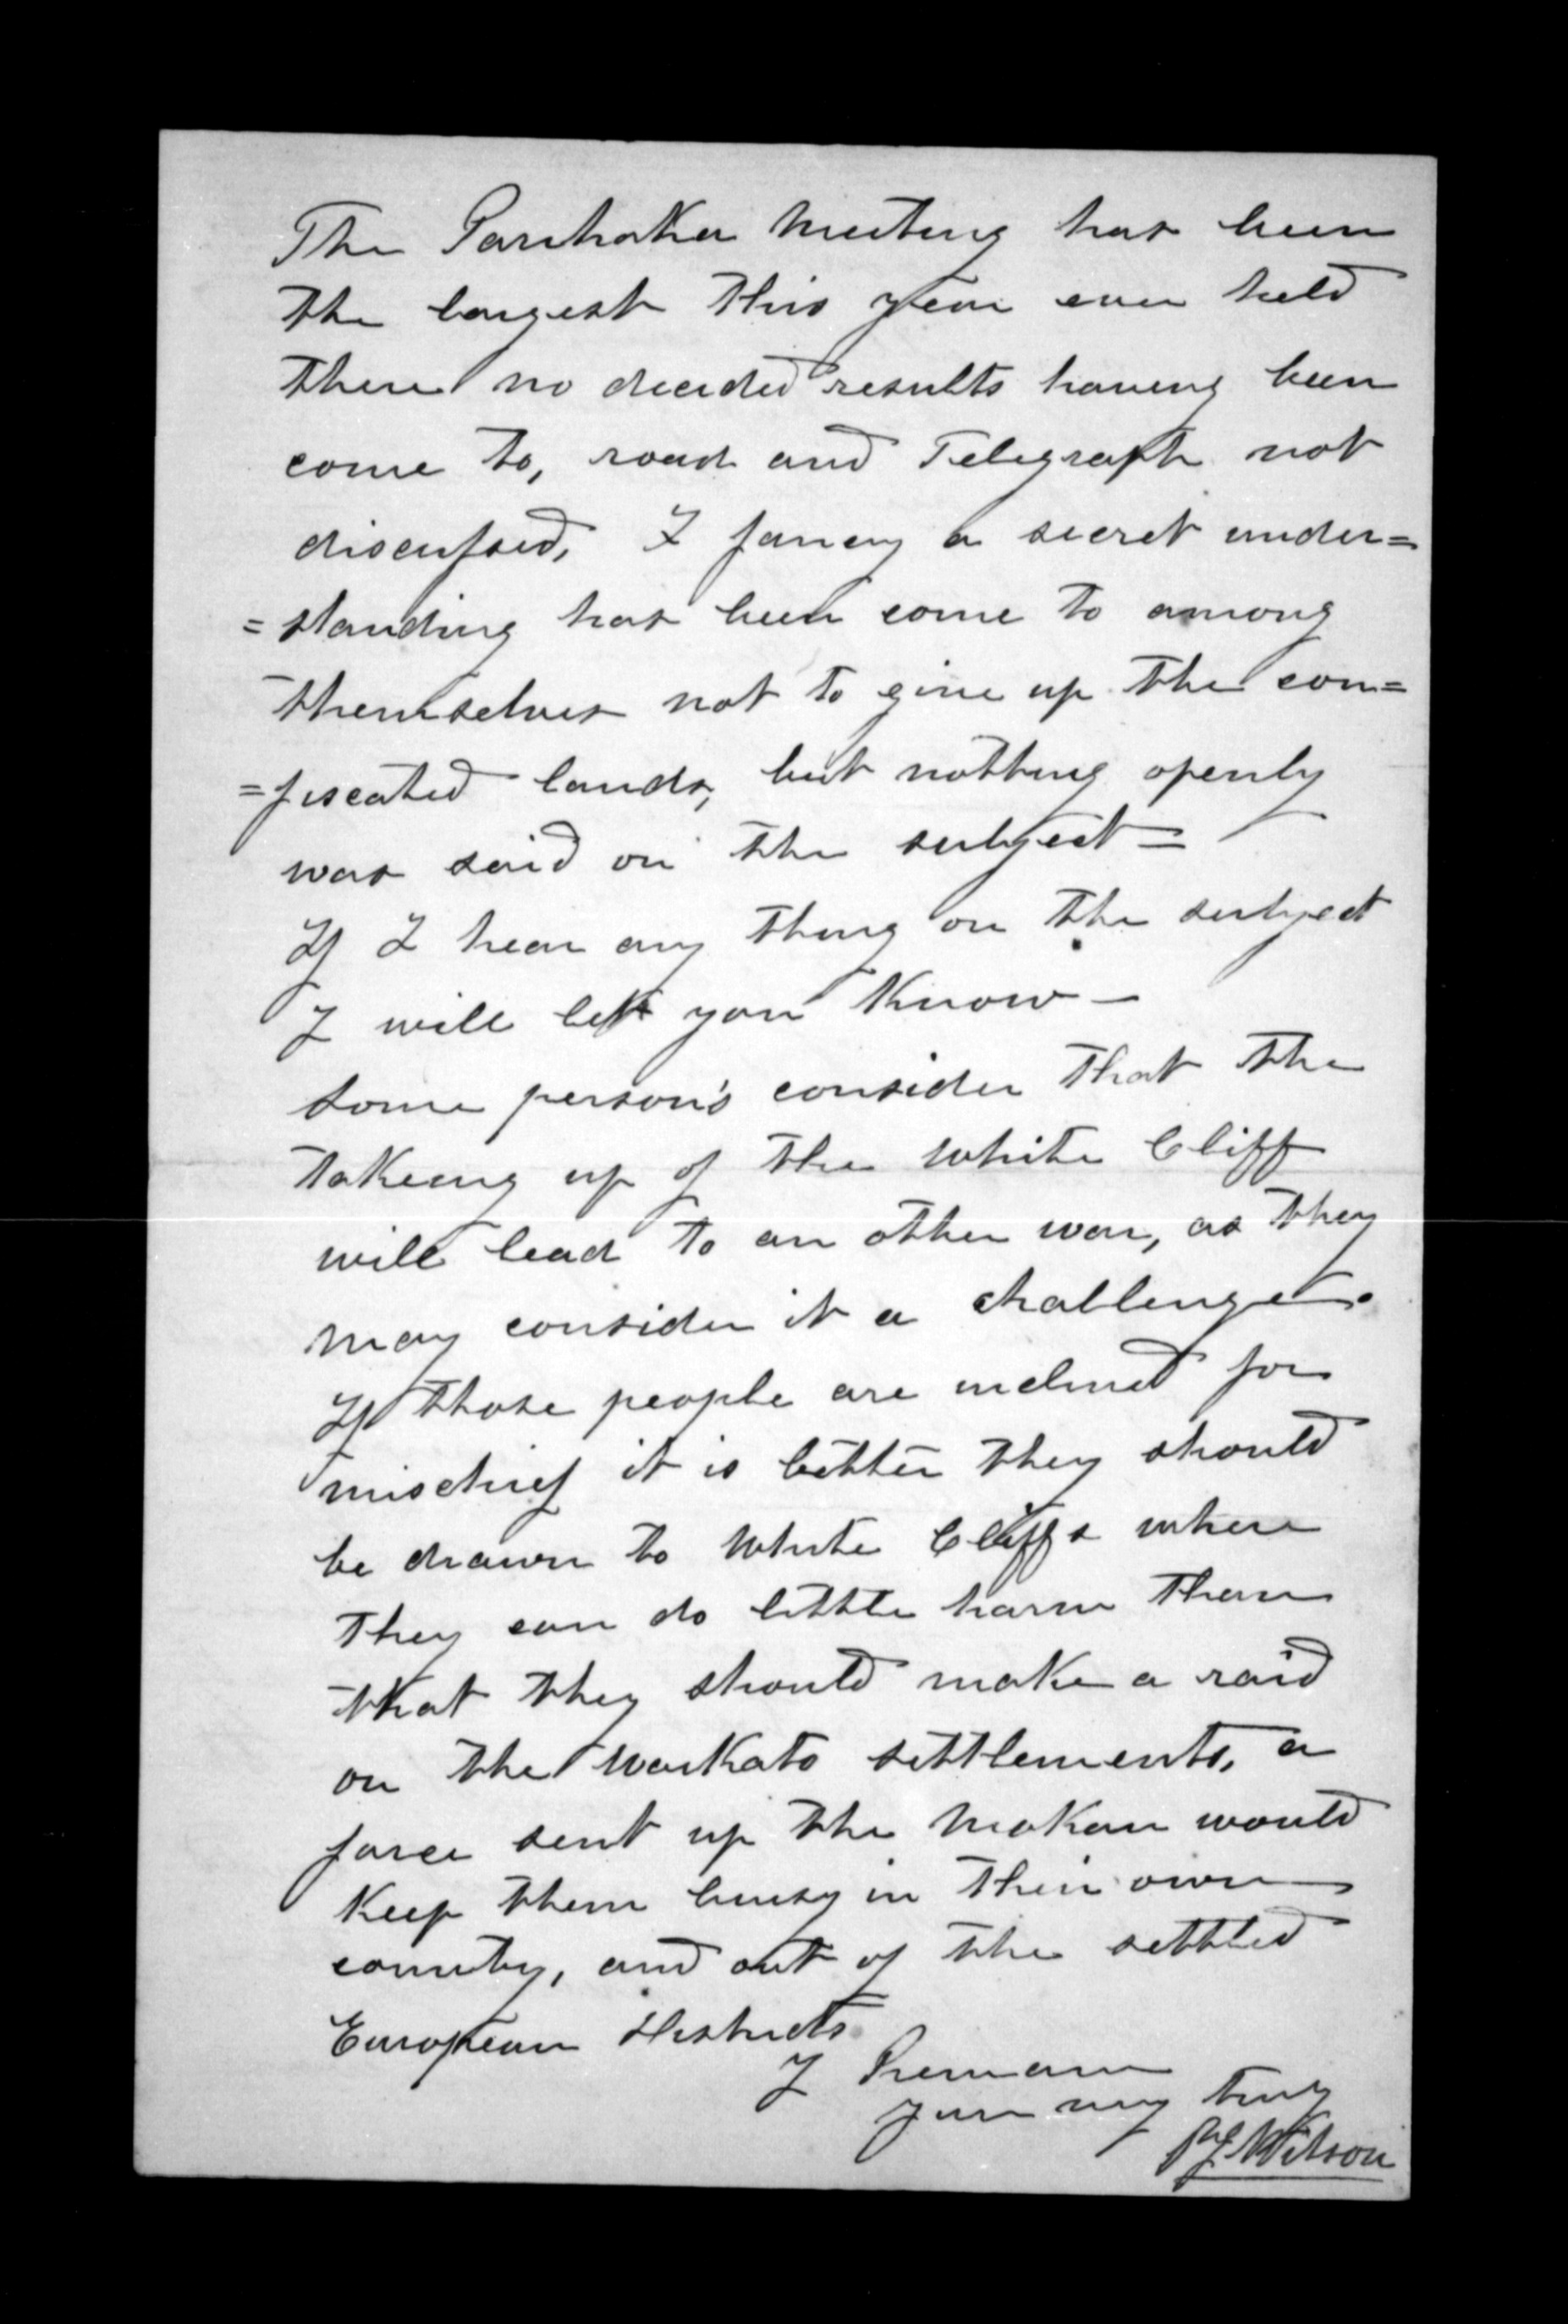 The Parihaka Meeting has been
the largest this year ever held
there no decided results having been
come to, road and Telegraph not
discussed, I fancy a secret under=
=standing has been come to among
themselves not to give up the con=
=fiscated lands, but nothing openly
was said on the subject =
If I hear any thing on the subject
I will let you Know —
Some person's consider that the
takeing up of the White Cliff
will lead to an other war, as they
may consider it a challenge.
If those people are inclined for
mischief it is better they should
be drawn to White Cliffs where
they can do little harm than
that they should make a raid
on the Waikato settlements, a
force sent up the Mokau would
Keep them busy in their own
country, and out of the settled
European Districts
I Remain
your very truly
Wilson